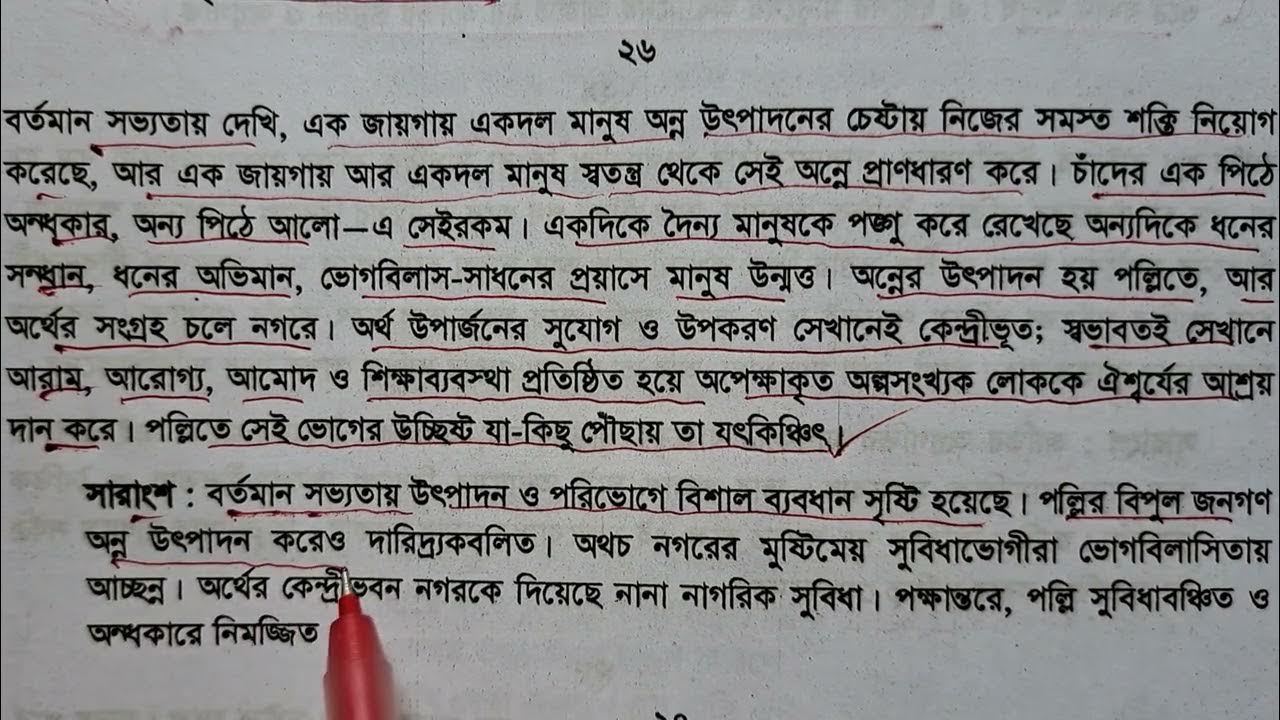 ২৬
বর্তমান সভ্যতায় দেখি, এক জায়গায় একদল মানুষ অন্ন উৎপাদনের চেষ্টায় নিজের সমস্ত শক্তি নিয়োগ
করেছে, আর এক জায়গায় আর একদল মানুষ স্বতন্ত্র থেকে সেই অন্নে প্রাণধারণ করে। চাঁদের এক পিঠে
অন্ধকার, অন্য পিঠে আলো—এ সেইরকম। একদিকে দৈন্য মানুষকে পঙ্গু করে রেখেছে অন্যদিকে ধনের
সন্ধান, ধনের অভিমান, ভোগবিলাস-সাধনের প্রয়াসে মানুষ উন্মত্ত। অন্নের উৎপাদন হয় পল্লিতে, আর
অর্থের সংগ্রহ চলে নগরে। অর্থ উপার্জনের সুযোগ ও উপকরণ সেখানেই কেন্দ্রীভূত; স্বভাবতই সেখানে
আরাম, আরোগ্য, আমোদ ও শিক্ষাব্যবস্থা প্রতিষ্ঠিত হয়ে অপেক্ষাকৃত অল্পসংখ্যক লোককে ঐশ্বর্যের আশ্রয়
দান করে। পল্লিতে সেই ভোগের উচ্ছিষ্ট যা-কিছু পৌঁছায় তা যৎকিঞ্চিৎ।
সারাংশ : বর্তমান সভ্যতায় উৎপাদন ও পরিভোগে বিশাল ব্যবধান সৃষ্টি হয়েছে। পল্লির বিপুল জনগণ
অন্ন উৎপাদন করেও দারিদ্র্যকবলিত। অথচ নগরের মুষ্টিমেয় সুবিধাভোগীরা ভোগবিলাসিতায়
আচ্ছন্ন। অর্থের কেন্দ্রীভবন নগরকে দিয়েছে নানা নাগরিক সুবিধা। পক্ষান্তরে, পল্লি সুবিধাবঞ্চিত ও
অন্ধকারে নিমজ্জিত